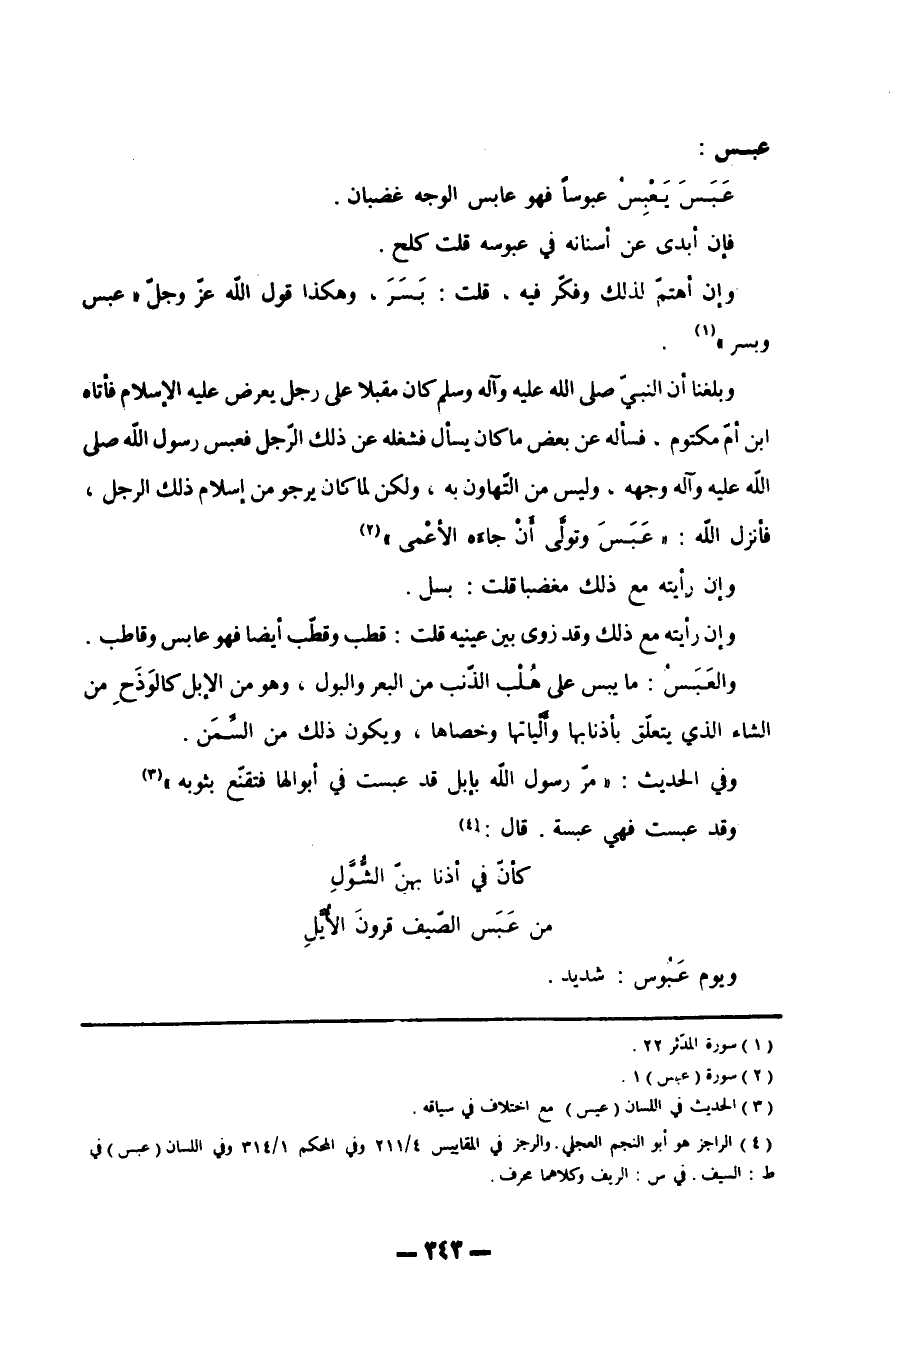 عبـس :
عَبَـسَ يَـعْبِسُ عبوساً فهو عابس الوجه غضبان .
فإن أبدى عن أسنانه في عبوسه قلت كلح .
وإن أهتمّ لذلك وفكّر فيه . قلت : بَـسَـرَ . وهكذا قول اللّه عزّ وجلّ « عبس
وبسر »(١) .
وبلغنا أن النبيّ صلى الله عليه وآله وسلم كان مقبلا على رجل يعرض عليه الإسلام فأتاه
ابن أمّ مكتوم . فسأله عن بعض ما كان يسأل فشغله عن ذلك الرّجل فعبس رسول اللّه صلى
اللّه عليه وآله وجهه . وليس من التّهاون به ، ولكن لما كان يرجو من إسلام ذلك الرجل ،
فأنزل اللّه : « عَبَـسَ وتولَّى أَنْ جاءه الأعْمى »(٢)
وإن رأيته مع ذلك مغضبا قلت : بسل .
وإن رأيته مع ذلك وقد زوى بين عينيه قلت : قطب وقطّب أيضا فهو عابس وقاطب .
والعَبَـسُ : ما يبس على هُلْب الذّنب من البعر والبول ، وهو من الإبل كالوَذَحِ من
الشاء الذي يتعلّق بأذنابها وألْياتها وخصاها ، ويكون ذلك من السِّمَن .
وفي الحديث : « مرّ رسول اللّه بإبل قد عبست في أبوالها فتقنّع بثوبه »(٣)
وقد عبست فهي عبسة . قال :(٤)
كأنّ في أذنا بهنّ الشُّوَّلِ
من عَبَس الصّيف قرونَ الأُيَّلِ
ويوم عَبُوس : شديد .
(١) سورة المدّثر ٢٢ .
(٢) سورة (عبس) ١ .
(٣) الحديث في اللسان (عبس) مع اختلاف في سياقه .
(٤) الراجز هو أبو النجم العجلي . والرجز في المقاييس ٢١١/٤ وفي المحكم ٣١٤/١ وفي اللسان (عبس) في
ط : السيف . في س : الريف وكلاهما محرف .
— ٣٤٣ —